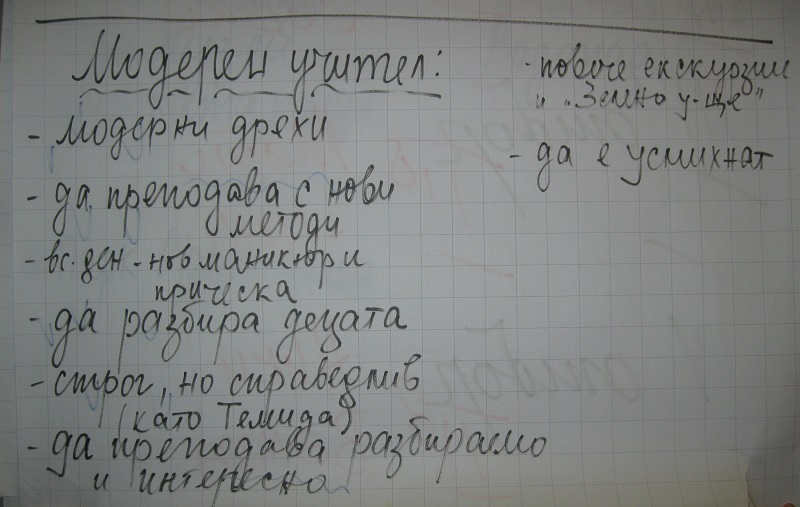 Модерен учител:
- модерни дрехи
- да преподава с нови
методи
- вс. ден - нов маникюр и
прическа
- да разбира децата
- строг, но справедлив
(като Темида)
- да преподава разбираемо
и интересно
- повече екскурзии
и "Зелено у-ще"
- да е усмихнат